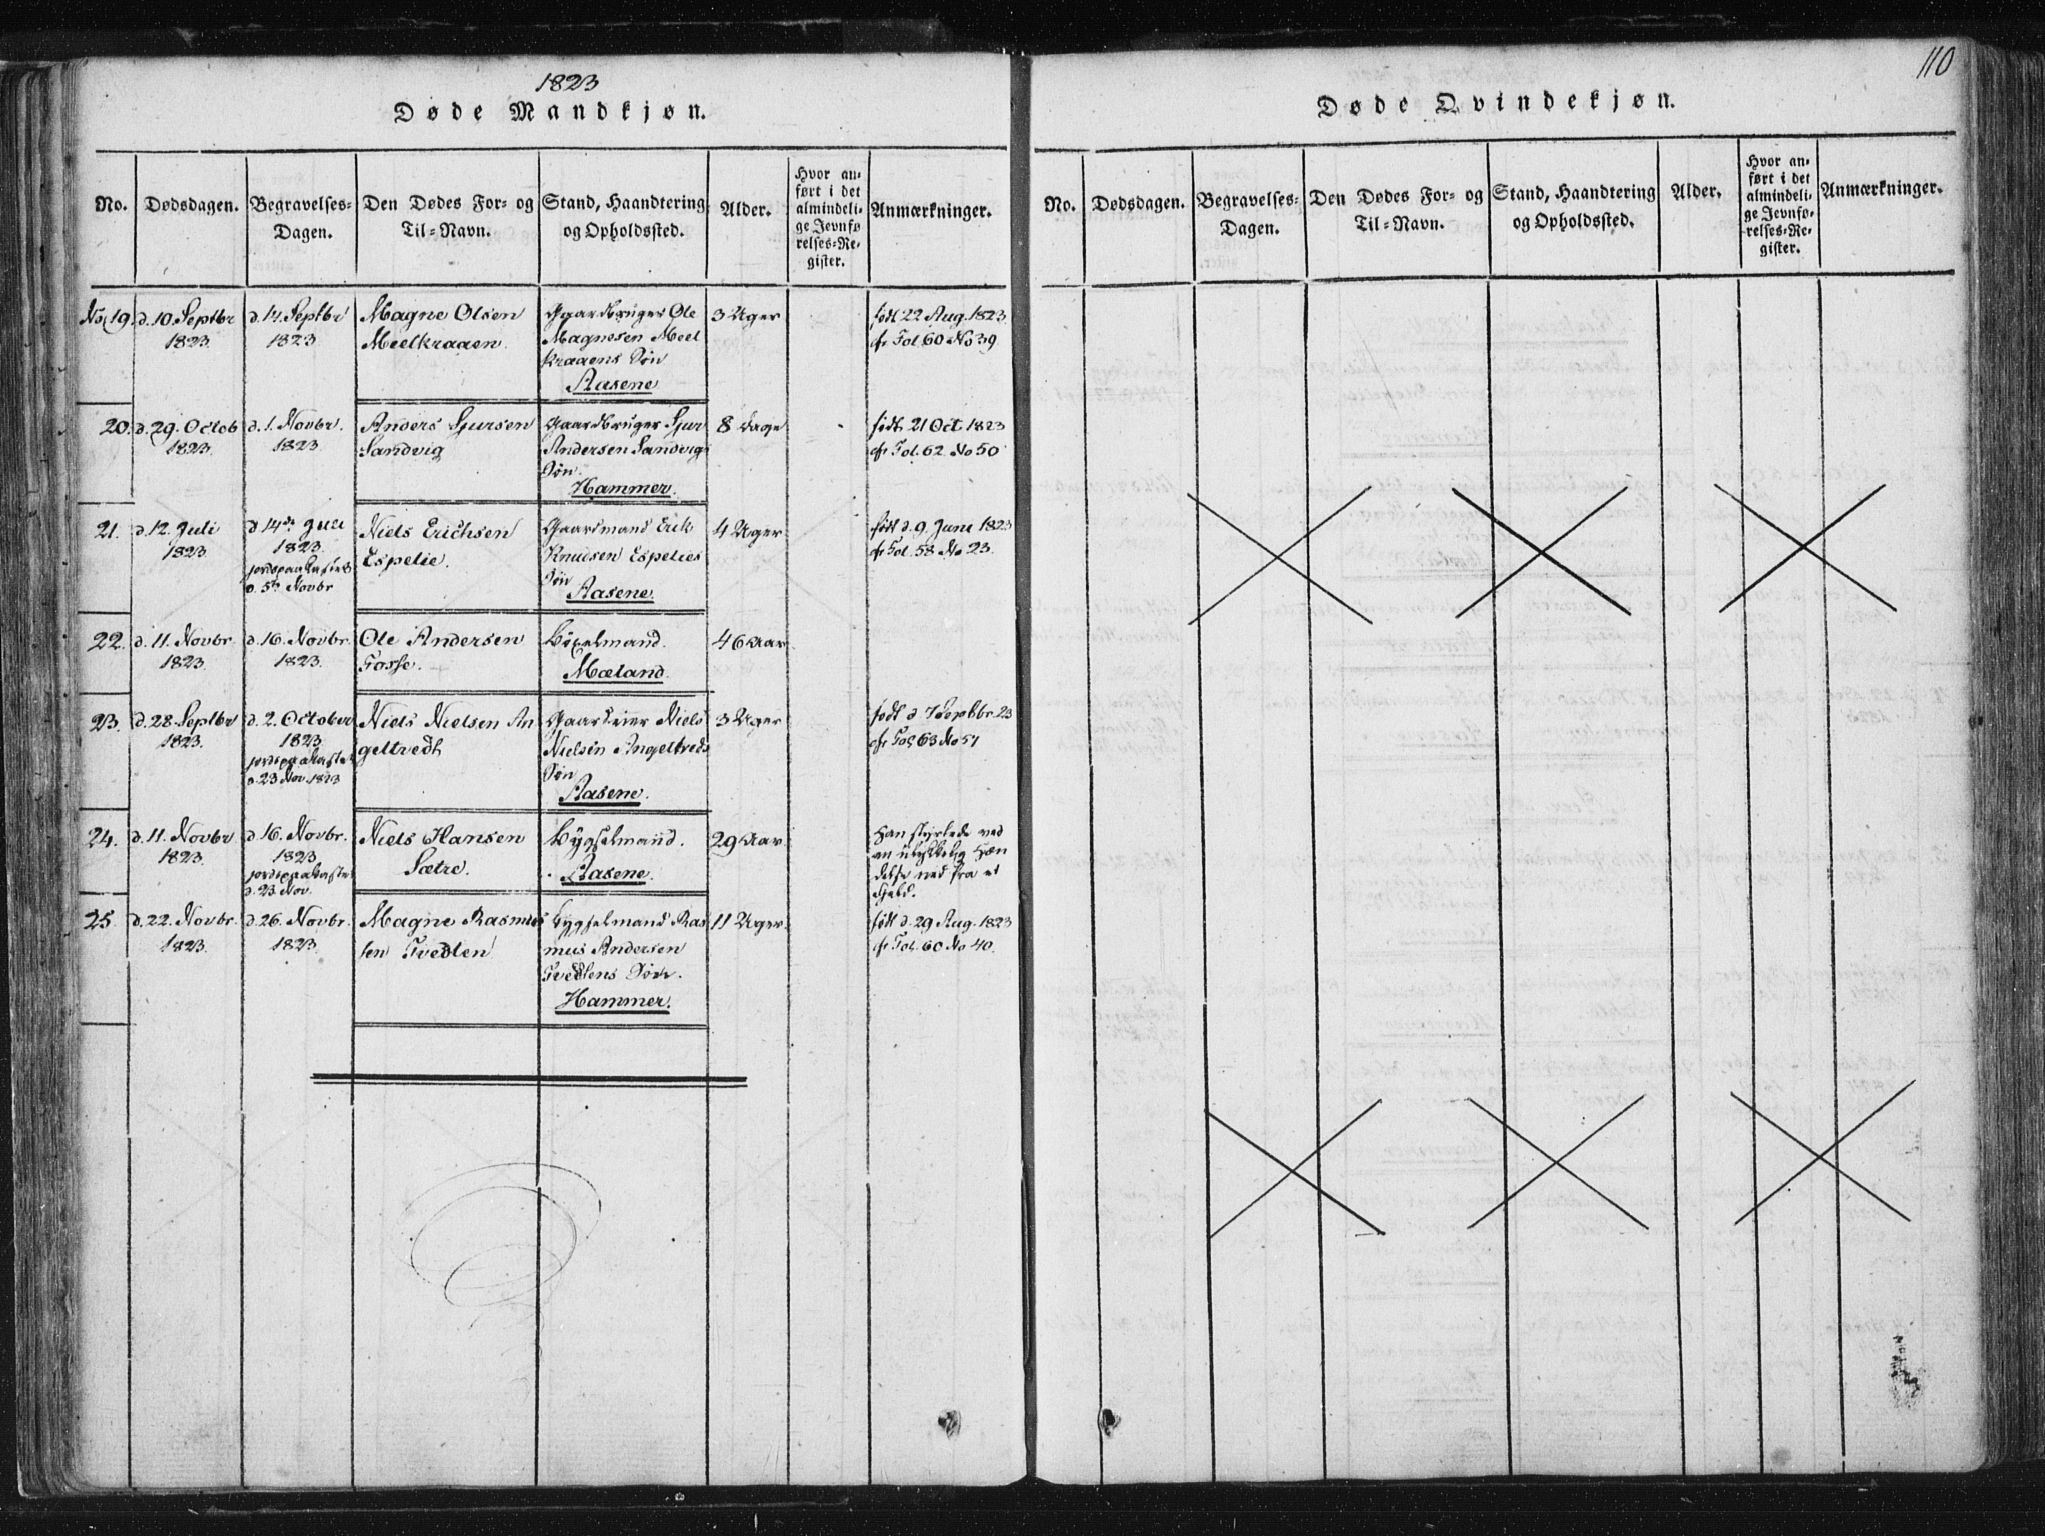 1823
Døde Mandkjøn.
No.
Dødsdagen.
Begravelses-
Dagen.
Den Dødes For- og
Til-Navn.
Stand, Haandtering
og Opholdssted.
Alder.
Hvor an-
ført i det
almindeli-
ge Jevnfø-
relses-Re-
gister.
Anmærkninger.
No 19.
d. 10. Septbr
1823.
d. 14. Septbr
1823
Magne Olsen
Meelkraaen.
Gaardbruger Ole
Magnesen Meel
kraaens Søn
Aasene
3 Uger
født 22 Aug. 1823
cfr Fol. 60 No 39
20.
d. 29. Octob
1823.
d. 1. Novbr.
1823
Anders Sjursen
Sandvig
Gaardbruger Sjur
Andersen Sandvigs
Søn.
Hammer.
8 Dage
født 21 Oct. 1823
cfr Fol. 62 No 50
21.
d. 12. Juli
1823.
d. 14de Juli
1823.
jordspaakastet
d. 5te Novbr
Niels Erichsen
Espelie.
Gaardmand Erik
Knudsen Espelies
Søn
Aasene.
4 Uger
født d. 9. Juni 1823
cfr Fol. 58 No 23.
22.
d. 11. Novbr.
1823.
d. 16. Novbr.
1823.
Ole Andersen
Fosse.
Bøxelmand.
Mæland.
46 Aar
23.
d. 28. Septbr
1823.
d. 2. October
1823
jordspaakastet
d. 23 Nov. 1823
Niels Nielsen An
geltvedt
Gaardeier Niels
Nielsen Angeltveds
Søn
Aasene.
3 Uger
født d 7 Septbr. 23
cfr Fol 63 No 57
24.
d. 11. Novbr
1823.
d. 16. Novbr.
1823
jordspaakastet
d. 23 Nov.
Niels Hansen
Sætre.
Bygselmand.
Aasene.
29 Aar
Han styrtede ved
en ulykkelig Hæn
delse ned fra et
Fjeld.
25.
d. 22. Novbr.
1823.
d. 26. Novbr.
1823.
Magne Rasmus
sen Tvedten
Bygselmand Ras
mus Andersen
Tvedtens Søn.
Hammer.
11 Uger.
født d. 29 Aug. 1823
cfr Fol. 60 No 40.
110
Døde Qvindekjøn.
No.
Dødsdagen.
Begravelses-
Dagen.
Den Dødes For- og
Til-Navn.
Stand, Haandtering
og Opholdssted.
Alder.
Hvor an-
ført i det
almindeli-
ge Jevnfø-
relses-Re-
gister.
Anmærkninger.